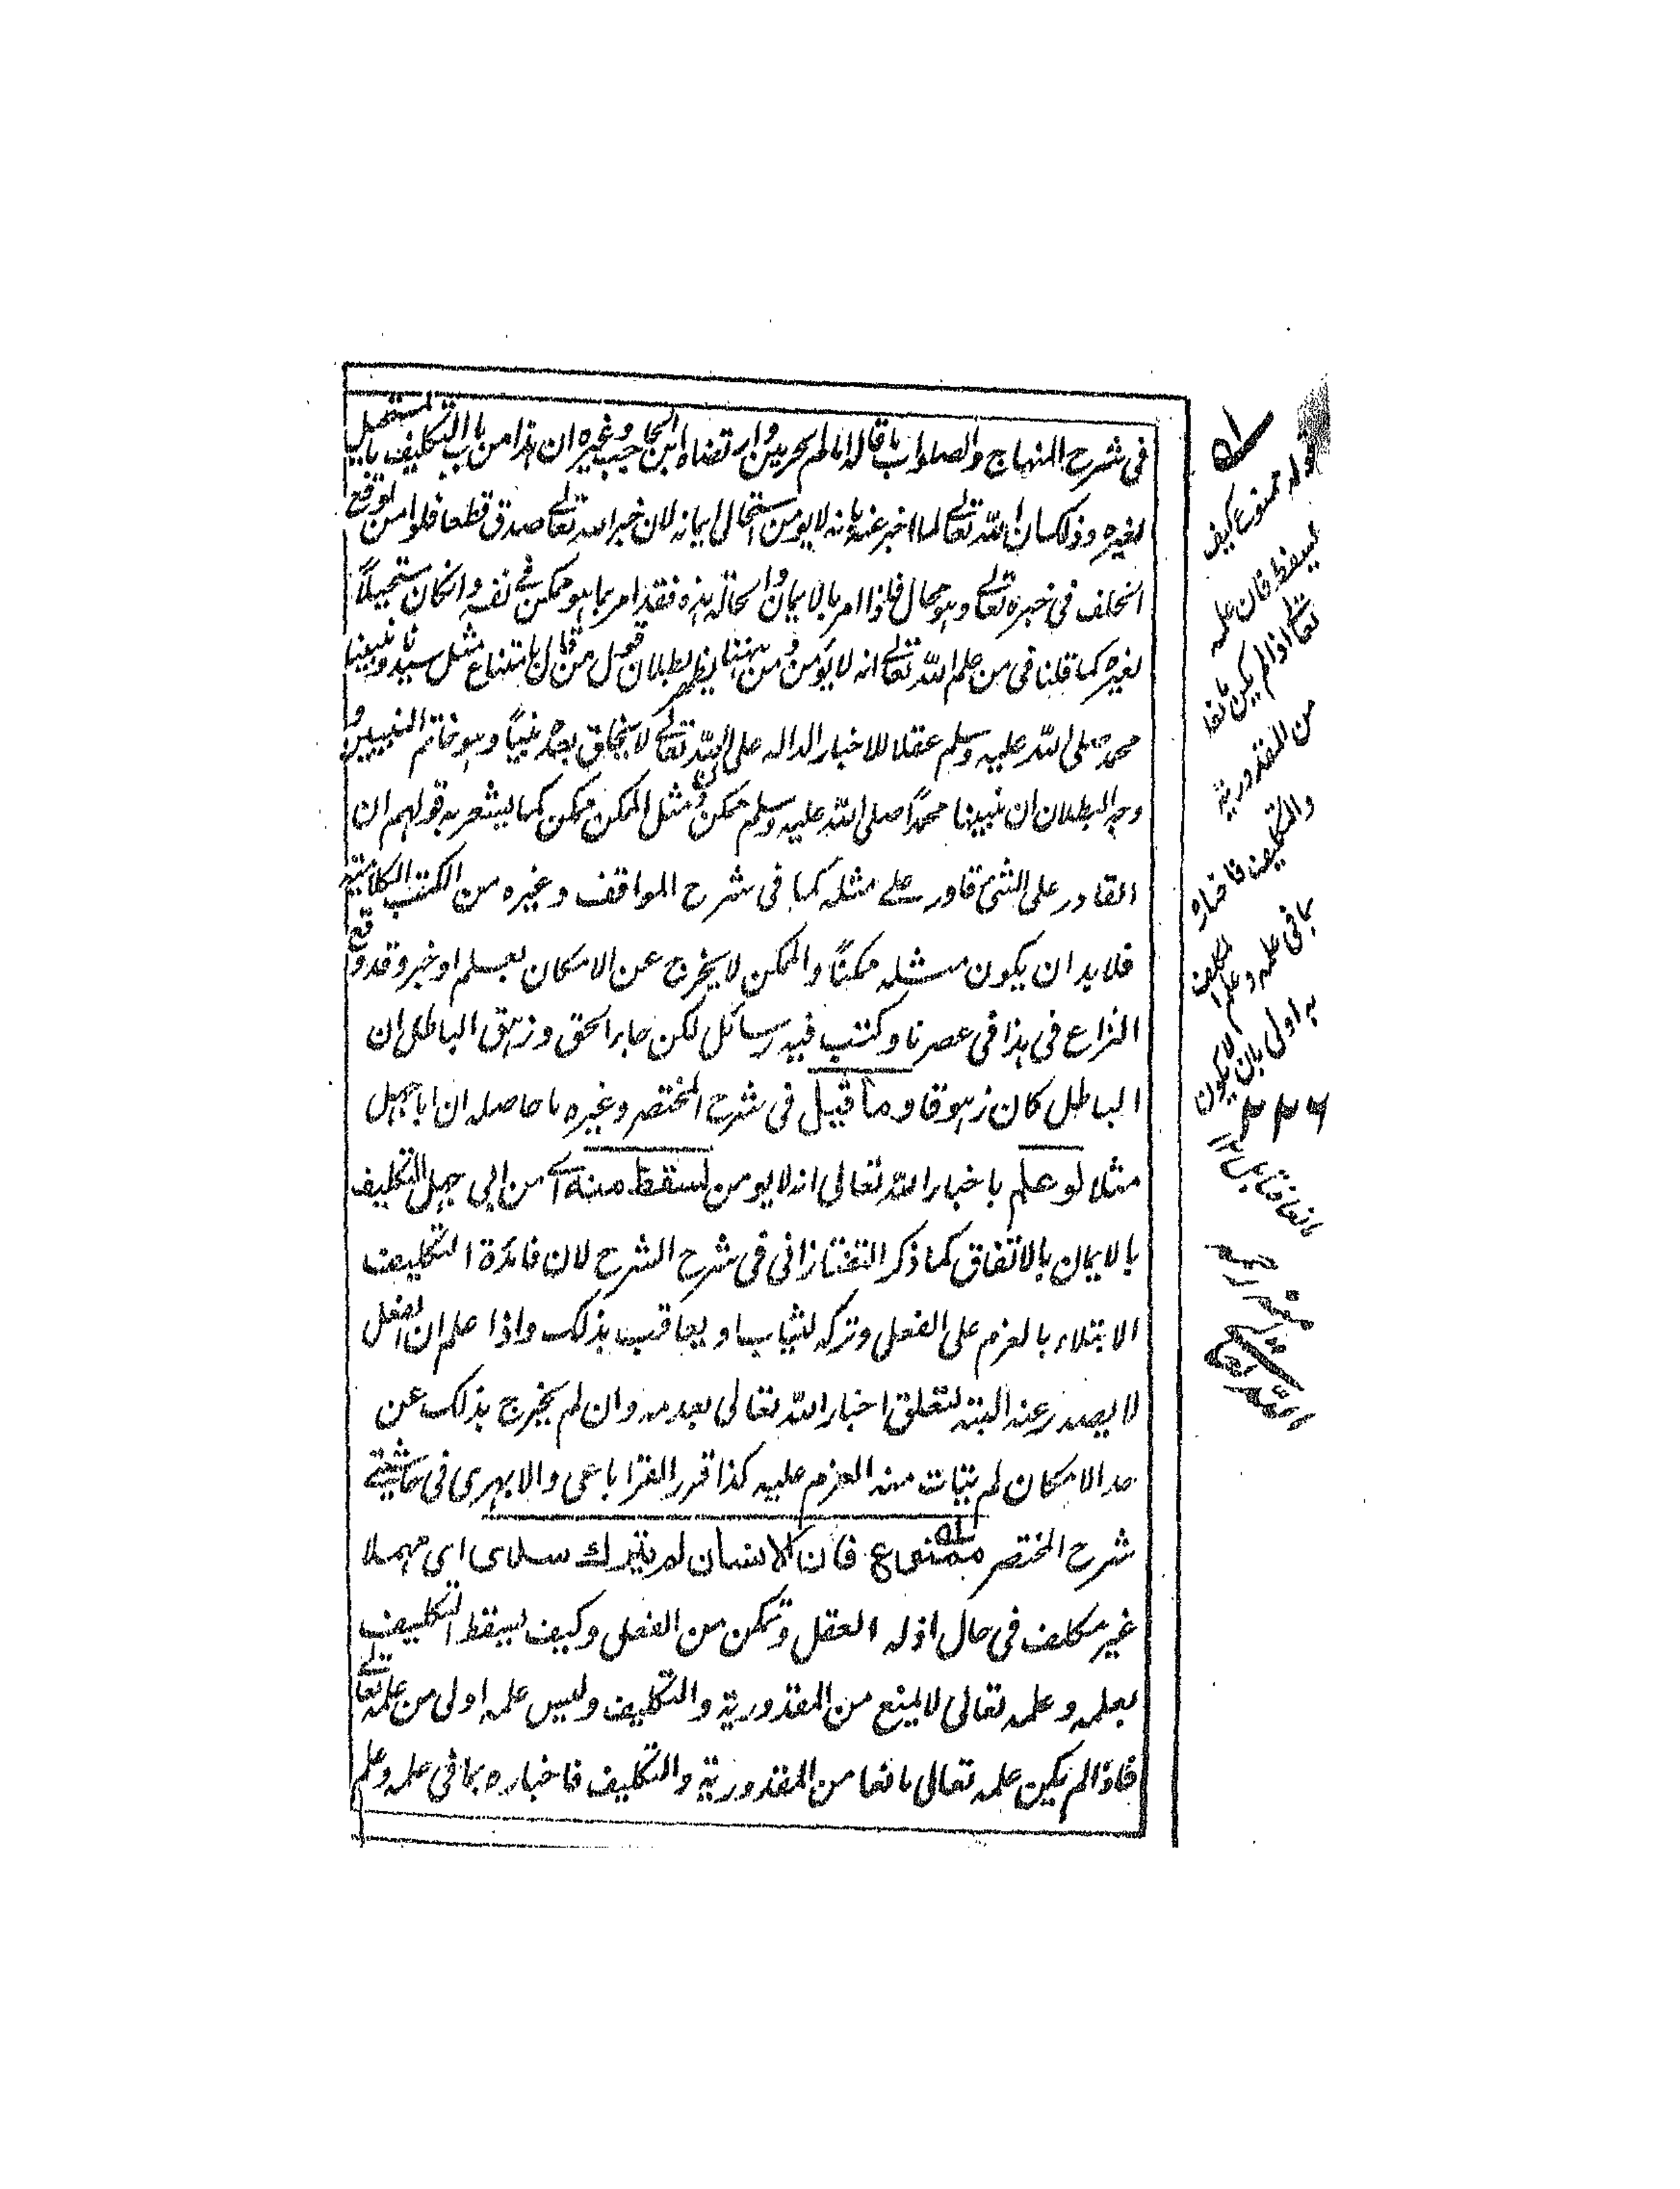 فى شرح المنهاج والصواب ما قاله امام الحرمين وارتضاه ابن الحاجب وغيره ان هذا من باب التكليف بالمستحيل
لغيره وذلك ان الله تعالى لما اخبر عنه بانه لا يومن استحال ايمانه لان خبر الله تعالى صدق قطعا فلو امن لوقع
الخلف فى خبره تعالى وهو محال فاذا امر بالايمان والحالة هذه فقد امر بما هو ممكن فى نفسه وانكان مستحيلاً
لغيره كما قلنا فى من علم الله تعالى انه لا يؤمن ومن ههنا يظهر بطلان قول من قال بامتناع مثل سيدنا ونبينا
محمد صلى الله عليه وسلم عقلا للاخبار الدالة على ان الله تعالى لا يخلق بعده نبياً وهو خاتم النبيين و
وجه البطلان ان نبينا محمداً صلى الله عليه وسلم ممكن ومثل الممكن ممكن كما يشعر به قولهم ان
القادر على الشئ قادر على مثله كما فى شرح المواقف وغيره من الكتب الكلامية
فلا بد ان يكون مثله ممكناً والممكن لا يخرج عن الامكان بعلم او خبر وقد وقع
النزاع فى هذا فى عصرنا وكتب فيه رسائل لكن جاء الحق وزهق الباطل ان
الباطل كان زهوقا وما قيل فى شرح المختصر وغيره ما حاصله ان ابا جهل
مثلا لو علم باخبار الله تعالى انه لا يومن لسقط منه اى من ابى جهل التكليف
بالايمان بالاتفاق كما ذكر التفتازانى فى شرح الشرح لان فائدة التكليف
الابتلاء بالعزم على الفعل وتركه ليثاب او يعاقب بذلك واذا علم ان الفعل
لا يصدر عنه البتة لتعلق اخبار الله تعالى بعدمه وان لم يخرج بذلك عن
حد الامكان لم يتات منه العزم عليه كذا قرر الفترا باغى والابهرى فى حاشيتى
شرح المختصر ممنوع فان الانسان لم يترك سدى اى مهملا
غير مكلف فى حال اذ له العقل وتمكن من الفعل وكيف يسقط التكليف
بعلمه وعلمه تعالى لا يمنع من المقدورية والتكليف وليس علمه اولى من علمه تعالى
فاذا لم يكن علمه تعالى مانعا من المقدورية والتكليف فاخباره بما فى علمه وعلم
قوله ممنوع كيف
يسقط فان علمه
تعالى اذا لم يكن مانعا
من المقدورية
والتكليف فاخباره
بما فى علمه وعلم المكلف
به اولى بان لا يكون
مانعا فتامل ١٢